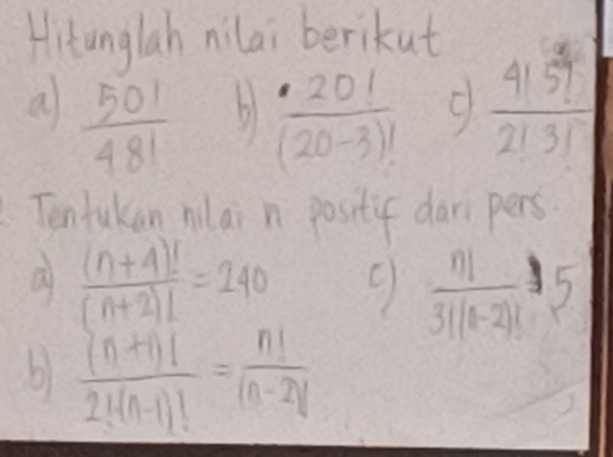 Hitunglah nilai berikut
a) 50!/48! b) 20!/(20-3)! c) 4! 5!/2! 3!
Tentukan nilai n positif dari pers.
a) (n+4)!/(n+2)! = 240 c) n!/3!(n-2)! 5
b) (n+1)!/2!(n-1)! = n!/(n-2)!